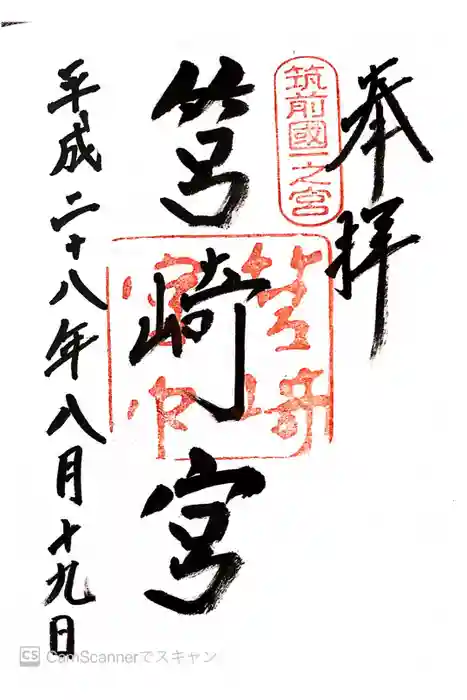 奉拝
筑前國一之宮
筥崎宮
筥崎宮印
平成二十八年八月十九日
CS CamScannerでスキャン